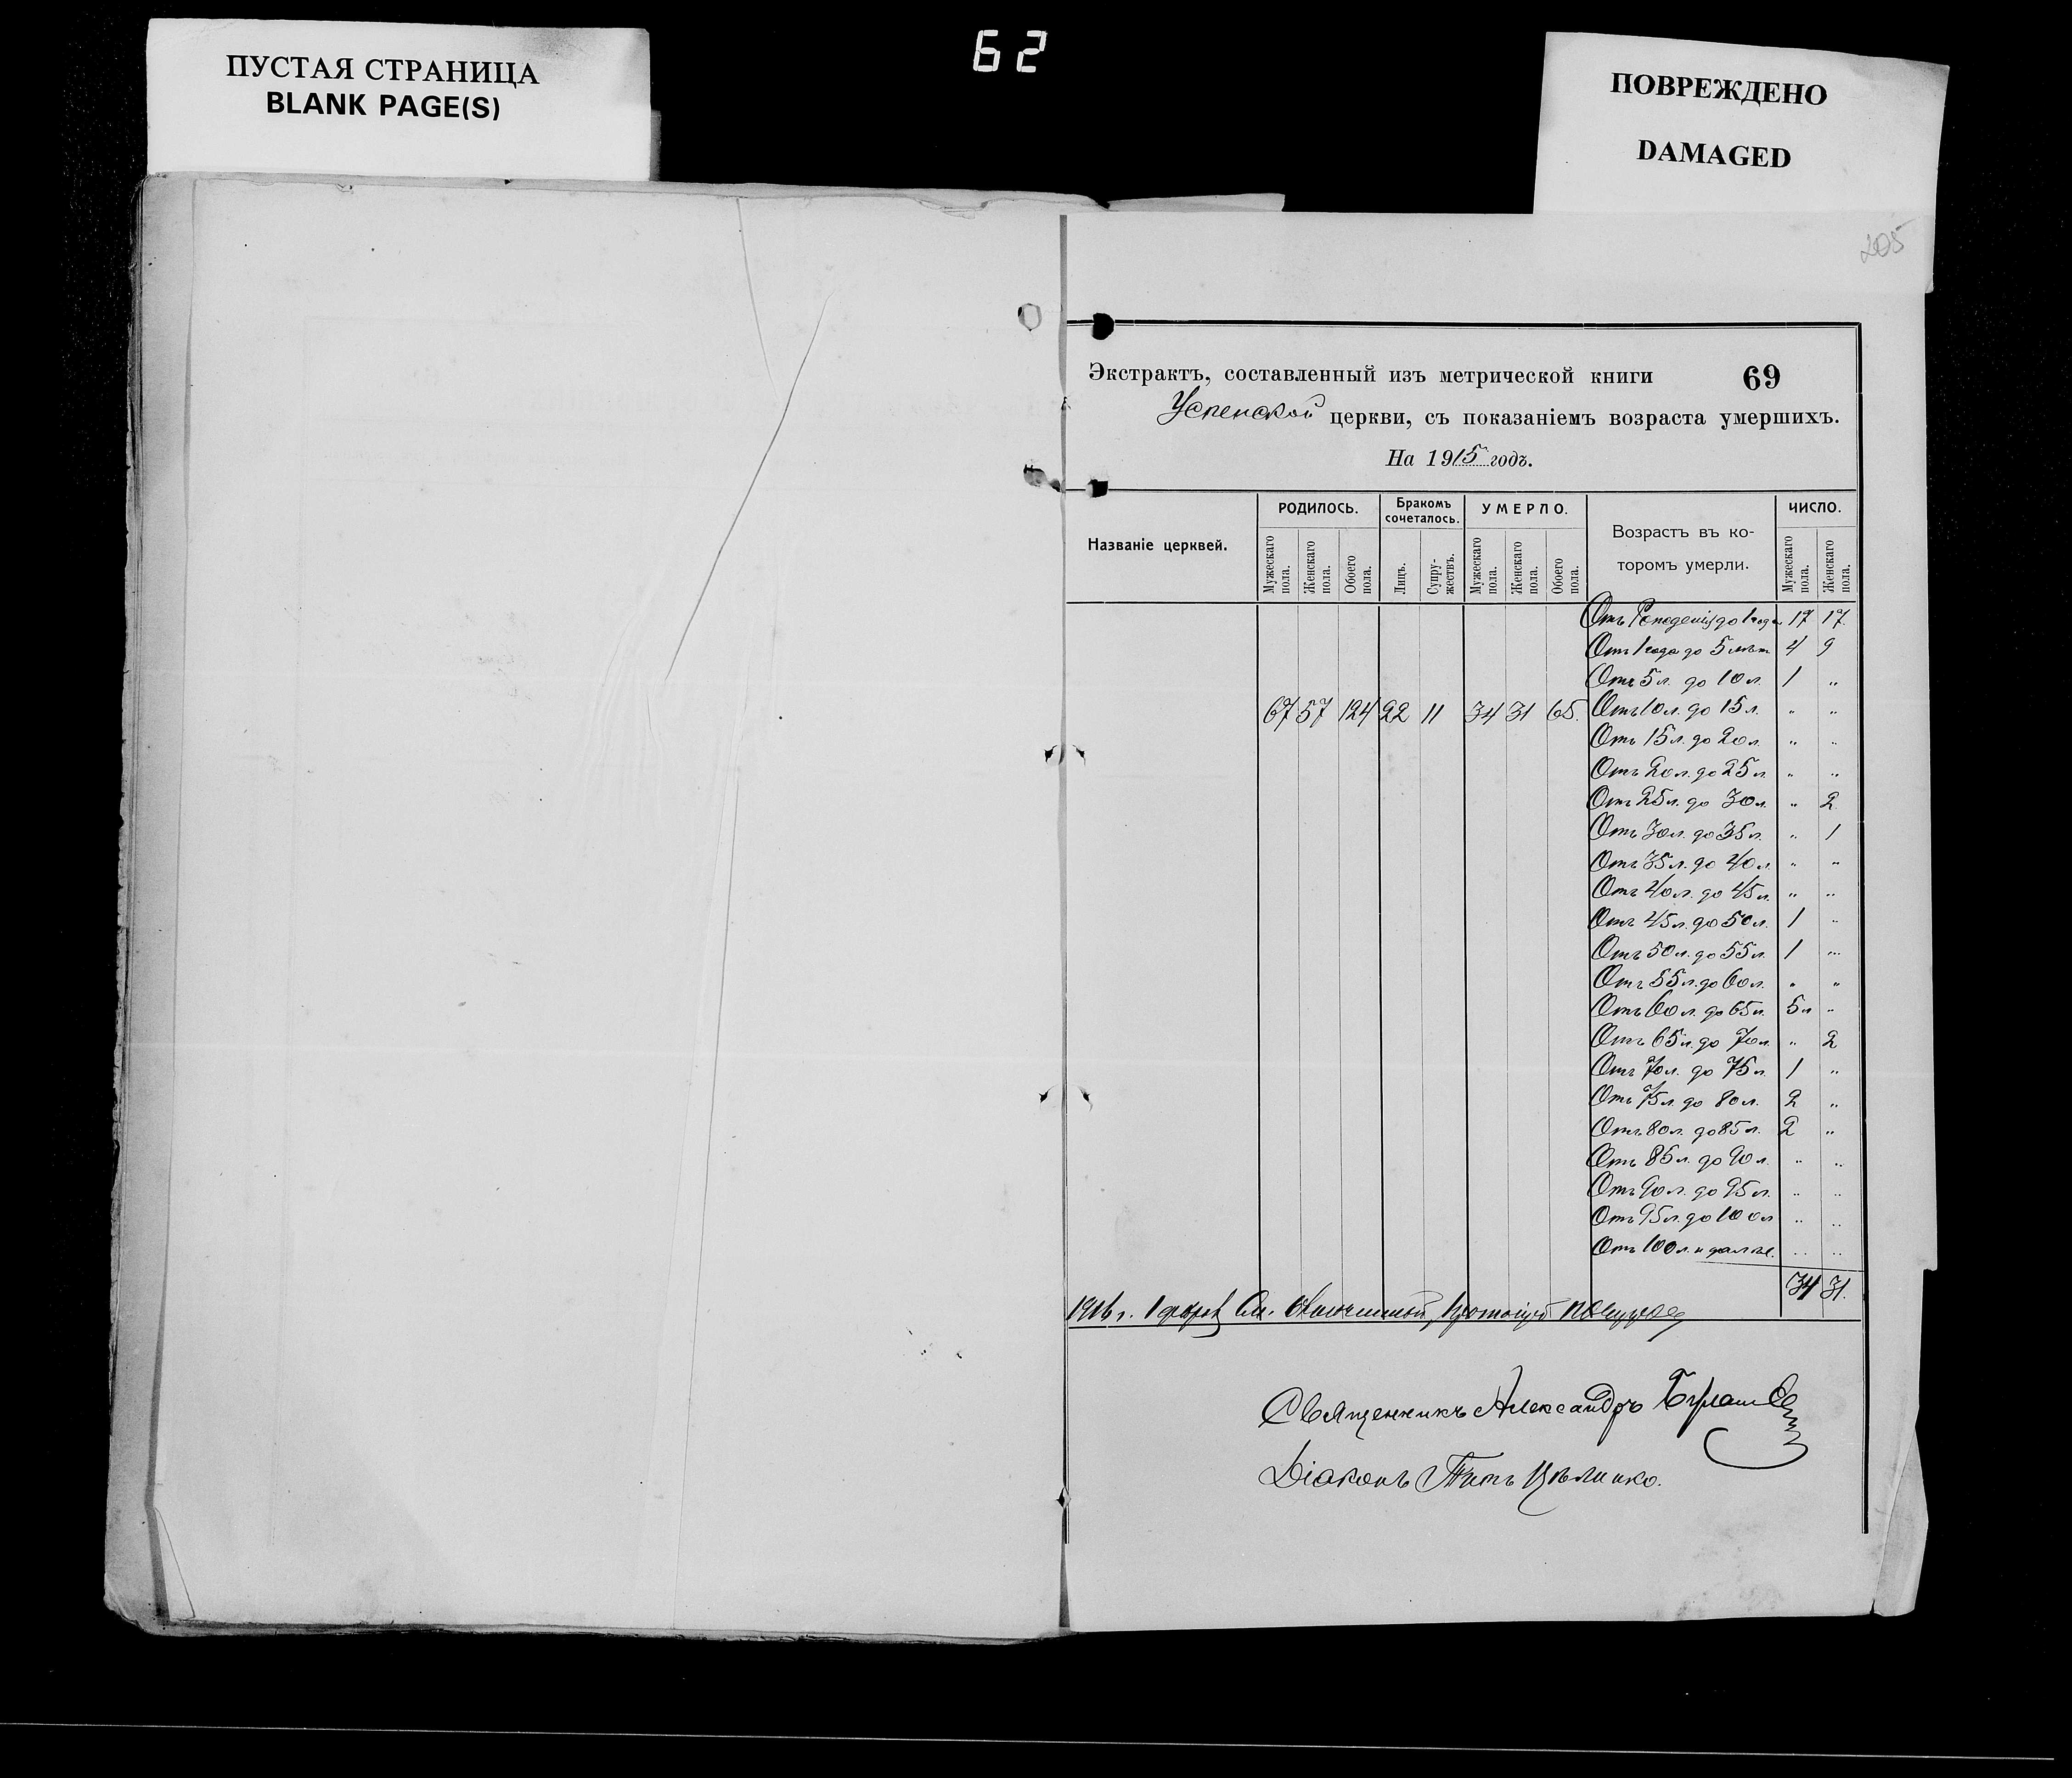 ПУСТАЯ СТРАНИЦА
BLANK PAGE(S)
62
ПОВРЕЖДЕНО
DAMAGED
205
Экстрактъ, составленный изъ метрической книги 69
Успенской церкви, съ показаніемъ возраста умершихъ.
На 1915 годъ.
Названіе церквей. РОДИЛОСЬ. Бракомъ сочеталось. УМЕРЛО. Возрастъ въ которомъ умерли. ЧИСЛО.
Мужескаго пола. Женскаго пола. Обоего пола. Лицъ. Супружествъ. Мужескаго пола. Женскаго пола. Обоего пола. Мужескаго пола. Женскаго пола.
Отъ Рожденія до 1 года 17 17
Отъ 1 года до 5 лѣт 4 9
Отъ 5 л. до 10 л. 1 "
67 57 124 22 11 34 31 65. Отъ 10 л. до 15 л. " "
Отъ 15 л. до 20 л. " "
Отъ 20 л. до 25 л. " "
Отъ 25 л. до 30 л. " 2
Отъ 30 л. до 35 л. " 1
Отъ 35 л. до 40 л. " "
Отъ 40 л. до 45 л. " "
Отъ 45 л. до 50 л. 1 "
Отъ 50 л. до 55 л. 1 "
Отъ 55 л. до 60 л. " "
Отъ 60 л. до 65 л. 5 "
Отъ 65 л. до 70 л. " 2
Отъ 70 л. до 75 л. 1 "
Отъ 75 л. до 80 л. 2 "
Отъ 80 л. до 85 л. 2 "
Отъ 85 л. до 90 л. " "
Отъ 90 л. до 95 л. " "
Отъ 95 л. до 100 л " "
Отъ 100 л. и далѣе. " "
34 31.
1916 г. 1
Священникъ Александръ
Діаконъ Титъ